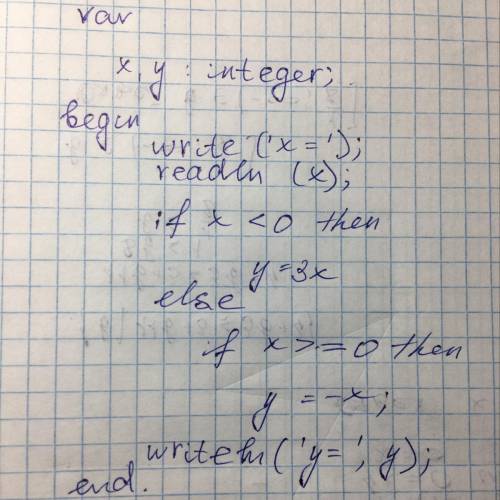 var
x, y : integer;
begin
write ('x=');
readln (x);
if x <0 then
y=3x
else
if x>=0 then
y =-x;
writeln('y=', y);
end.